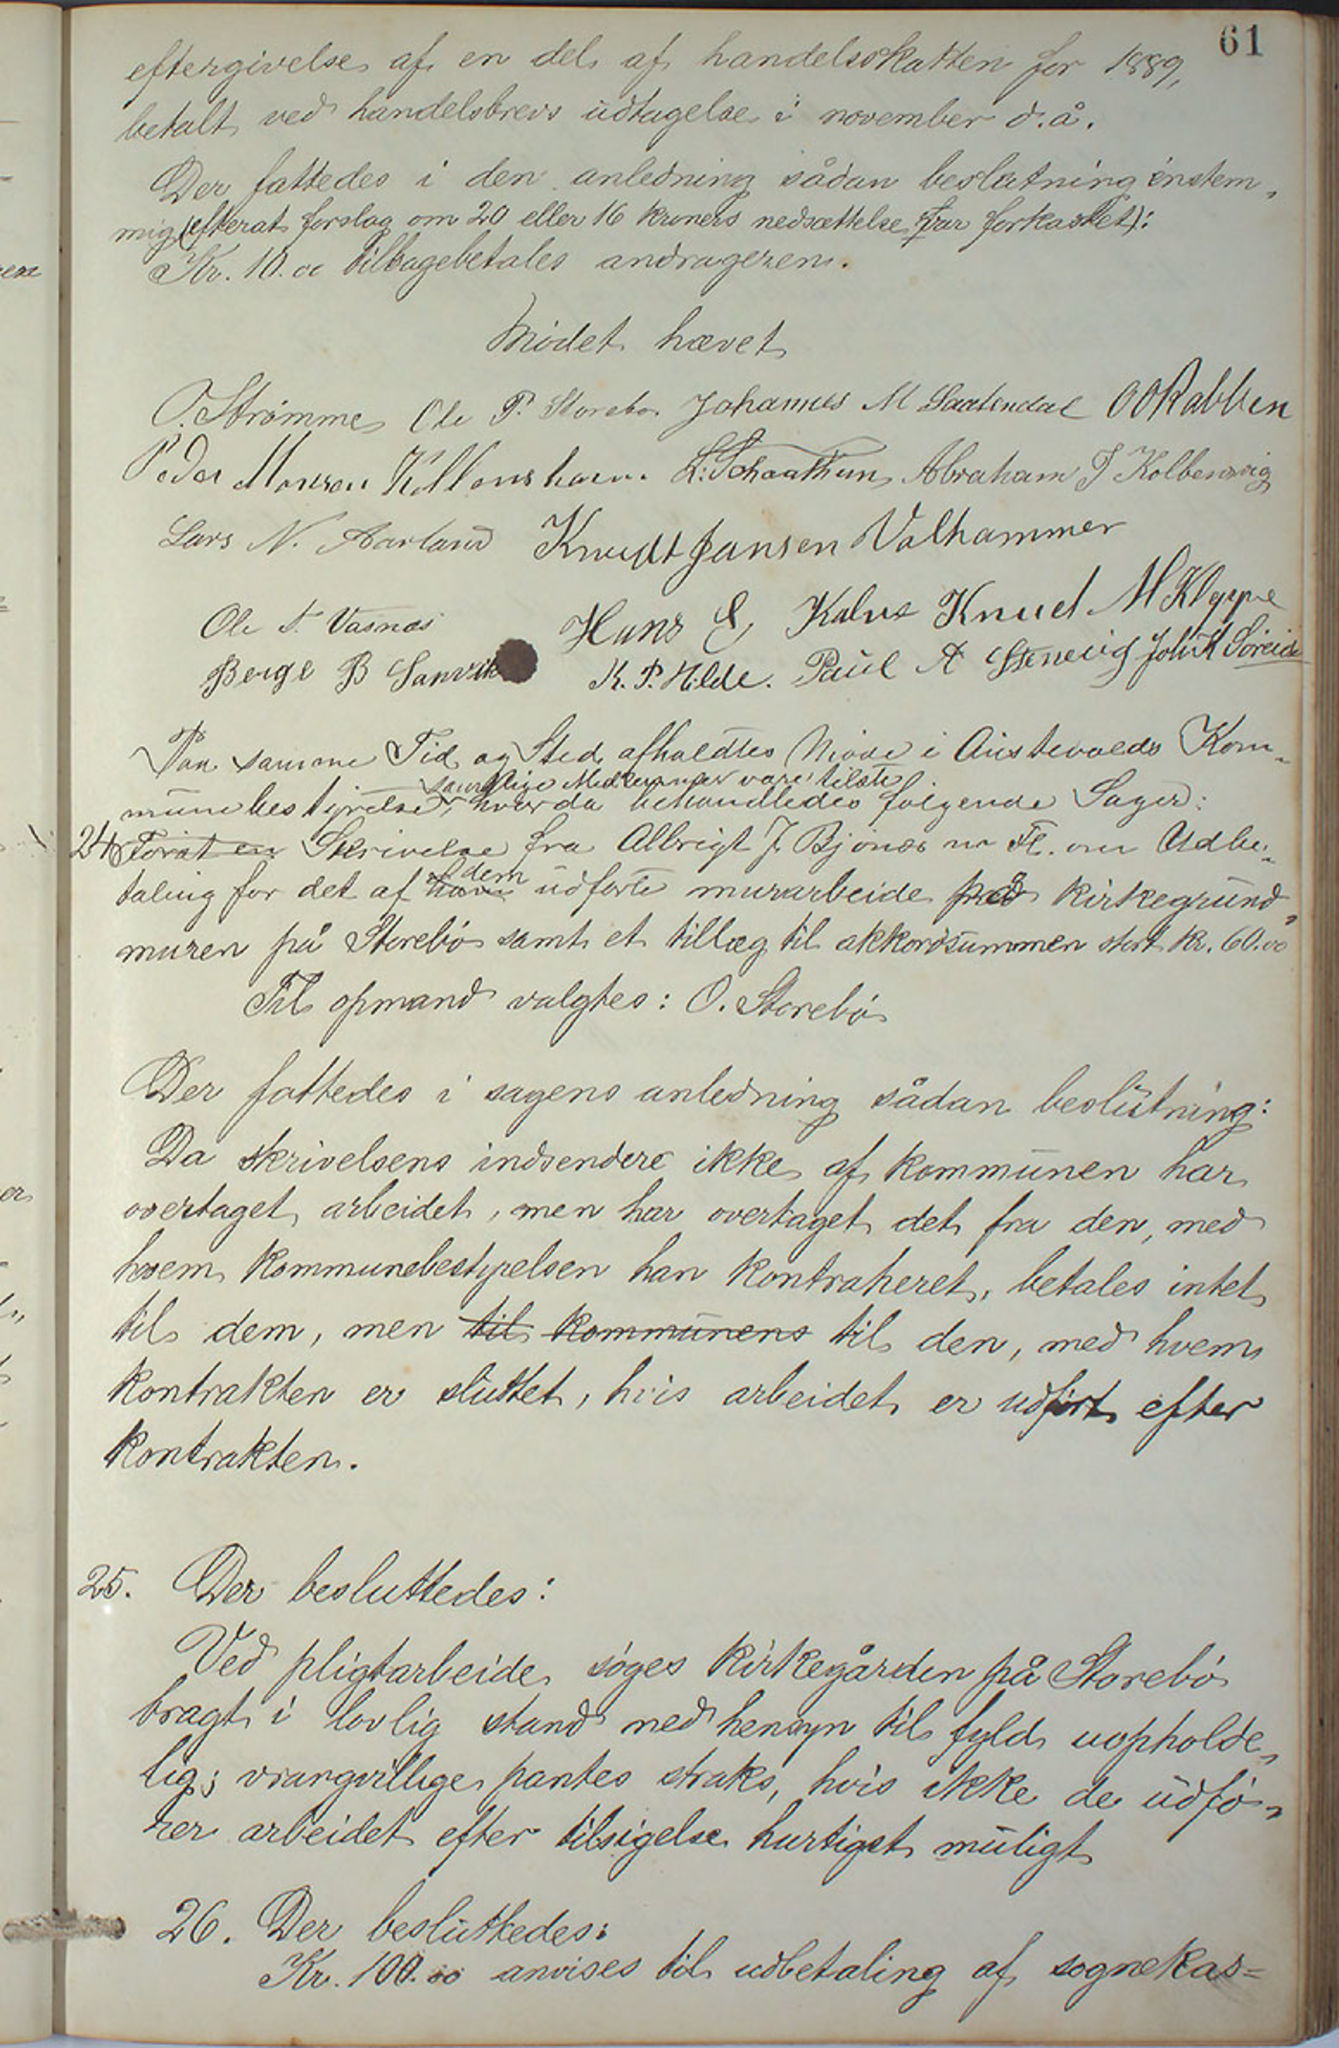 61
eftergivelse af en del af handelsskatten for 1889,
betalt ved handelsbrevs udtagelse i november d.å.
Der fattedes i den anledning sådan beslutning enstem-
mig (efterat forslag om 20 eller 16 kroners nedsættelse var forkastet):
Kr. 10.00 tilbagebetales andrageren.
Mødet hævet
O. Strømme Ole P. Storebø Johannes M OO Rabben
Peder Monsen L. Schaathun Abraham J Kolbensvig
Lars N. Aarland Knudt Jansen Valhammer
Ole T. Vasnæs Hans E. Kalve Knud M Kleppe
Børge B Sanvik K. P. Hilde. Paul A Stenevig Joh K Søreide
Paa samme Tid og Sted afholdtes Møde i Austevolds Kom-
samtlige Medlemmer vare tilstede
munebestyrelse, hvor da behandledes følgende Sager:
24. Først en Skrivelse fra Albrigt J. Bjønæs m. Fl. om Udbe-
dem
taling for det af ham udførte murarbeide på kirkegrund-
muren på Storebø samt et tillæg til akkordsummen stort kr. 60.00
Til opmand valgtes: O. Storebø
Der fattedes i sagens anledning sådan beslutning:
Da skrivelsens indsendere ikke af kommunen har
overtaget arbeidet, men har overtaget det fra den, med
hvem kommunebestyrelsen har kontraheret, betales intet
til dem, men til kommunens til den, med hvem
kontrakten er sluttet, hvis arbeidet er udført efter
kontrakten.
25. Der besluttedes:
Ved pligtarbeide søges kirkegården på Storebø
bragt i lovlig stand med hensyn til fyld uopholde-
lig; vrangvillige pantes straks, hvis ikke de udfø-
rer arbeidet efter tilsigelse hurtigst muligt
26. Der besluttedes:
Kr. 100.00 anvises til udbetaling af sognekas=